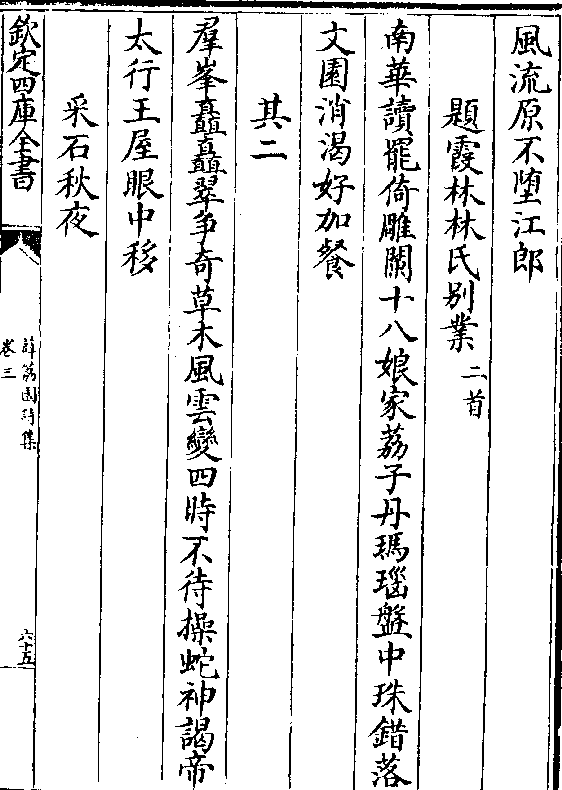 風流原不堕江郎
題霞林林氏别業二首
南華讀罷倚雕闌十八娘家荔子丹瑪瑙盤中珠錯落
文園消渴好加餐
其二
羣峯矗矗翠争奇草木風雲變四時不待操蛇神謁帝
太行王屋眼中移
采石秋夜
欽定四庫全書
薜荔園詩集
卷三
六十五